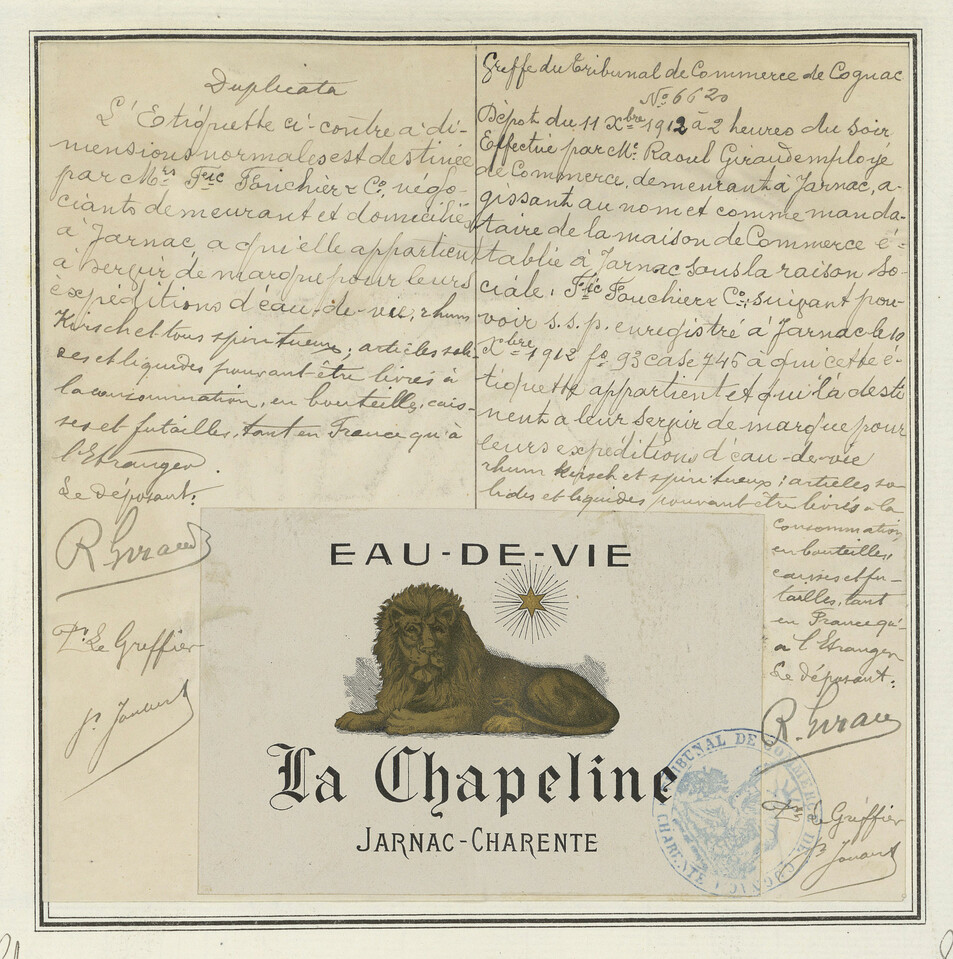 Duplicata
L'Etiquette ci-contre à di-
mensions normales est destinée
par Mrs Fric Fouchier & Co, négo-
ciants demeurant et domiciliés
à Jarnac, a qui elle appartient
à servir de marque pour leurs
expéditions d'eau-de-vie, rhum
Kirsch et tous spiritueux; articles soli-
des et liquides pouvant être livrés à
la consommation, en bouteilles, cais-
ses et futailles, tant en France qu'à
l'Etranger.
Le déposant:
R. Giraud
Pr. Le Greffier
Greffe du Tribunal de Commerce de Cognac
No 6620
Dépôt du 11 Xbre 1912 à 2 heures du soir
Effectué par Mr. Raoul Giraud employé
de Commerce, demeurant à Jarnac, a-
gissant au nom et comme manda-
taire de la maison de Commerce é-
tablie à Jarnac sous la raison so-
ciale: Fric Fouchier & Co; suivant pou-
voir s.s.p. enregistré à Jarnac le 10
Xbre 1912 fo 93 case 745 a qui cette é-
tiquette appartient et qui la desti
nent a leur servir de marque pour
leurs expéditions d'eau-de-vie
rhum Kirsch et spiritueux; articles so-
lides et liquides pouvant être livrés a la
consommation
en bouteilles,
caisses et fu-
tailles, tant
en France qu'
a l'Etranger
Le déposant:
R. Giraud
Pr Le Greffier
EAU-DE-VIE
La Chapeline
JARNAC-CHARENTE
TRIBUNAL DE COMMERCE DE COGNAC
CHARENTE